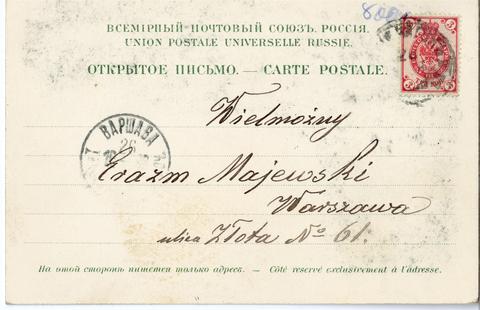 ВСЕМІРНЫЙ ПОЧТОВЫЙ СОЮЗЪ. РОССІЯ.
UNION POSTALE UNIVERSELLE RUSSIE.
ОТКРЫТОЕ ПИСЬМО. — CARTE POSTALE.
3 3
Wielmożny
ВАРШАВА
26
Erazm Majewski
Warszawa
ulica Złota No 61.
На этой сторонѣ пишется только адресъ. — Côté réservé exclusivement à l'adresse.